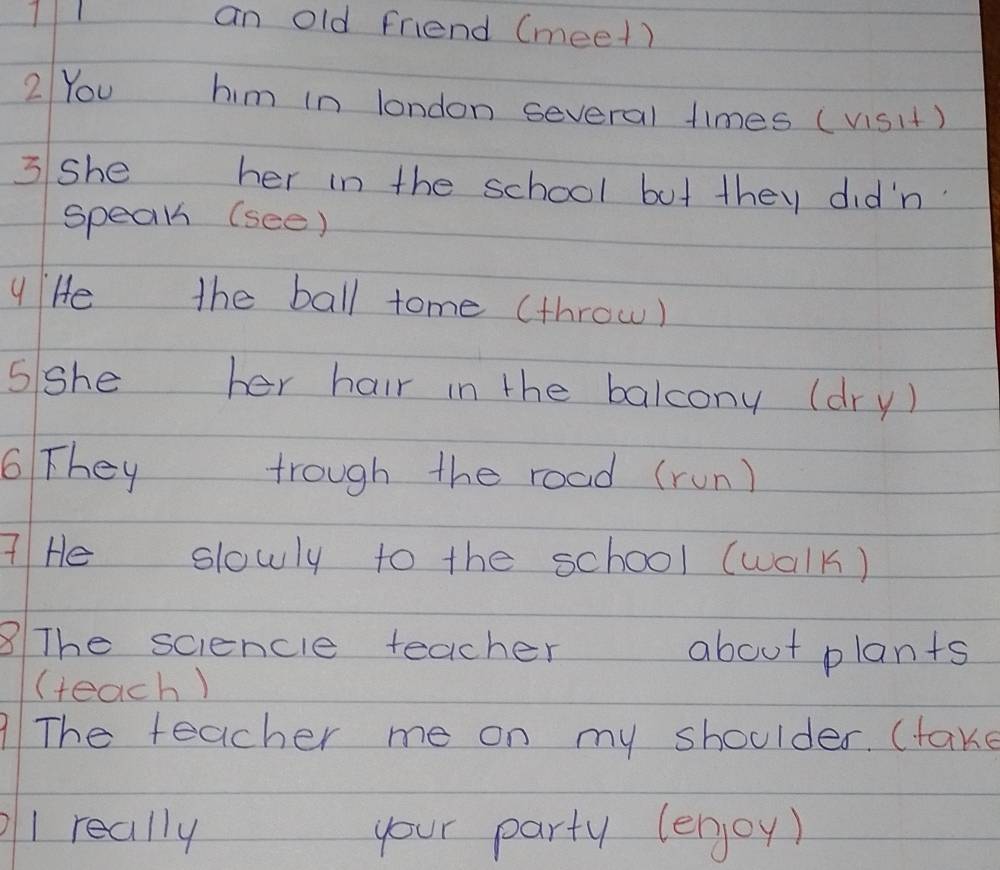 1 I an old friend (meet)
2 You him in london several times (visit)
3 She her in the school but they did'n
speak (see)
4 He the ball tome (throw)
5 She her hair in the balcony (dry)
6 They trough the road (run)
7 He slowly to the school (walk)
8 The sciencie teacher about plants
(teach)
9 The teacher me on my shoulder. (take
0 I really your party (enjoy)